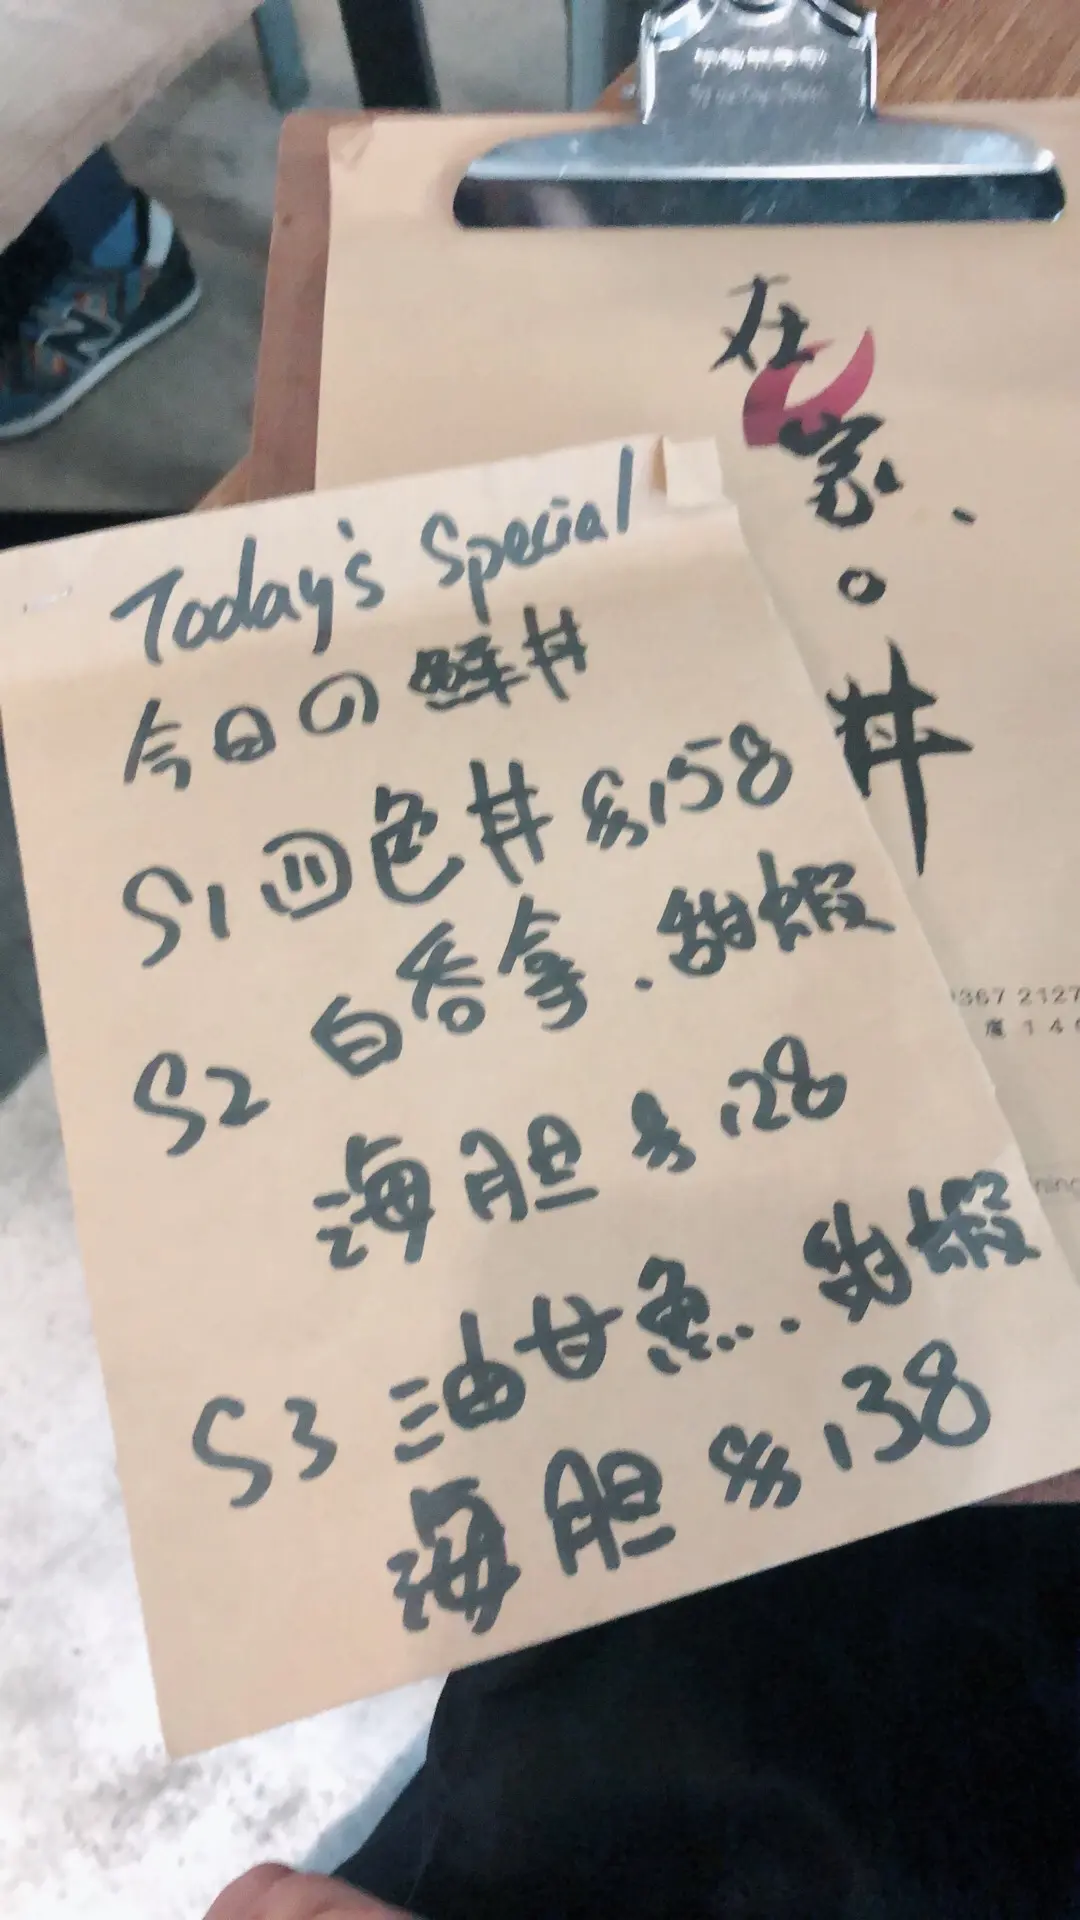 在家。丼
Today's Special
今日の鮮丼
S1 四色丼 $158
S2 白吞拿．甜蝦
海胆 $128
S3 油甘魚．甜蝦
海胆 $138
367 2127
ning